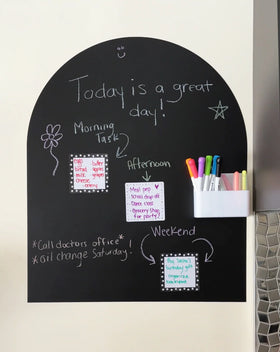 Today is a great
day!
Morning
Task
Afternoon
Meal prep
School drop off
Grocery Shop
for party?
Weekend
*Call doctors office*
*Oil change Saturday*!
birthday gift
organize
backyard